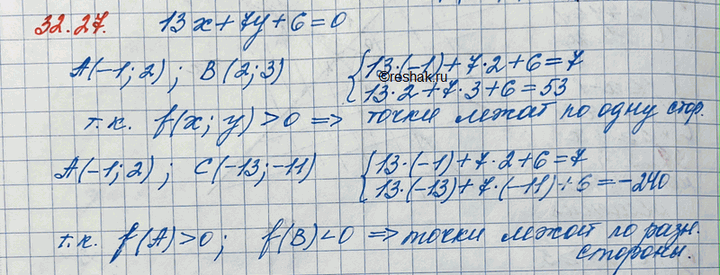 32.27. 13x+7y+6=0
A(-1;2); B(2;3) {13·(-1)+7·2+6=7
©reshak.ru
13·2+7·3+6=53
т.к. f(x;y)>0 => точки лежат по одну стор.
A(-1;2); C(-13;-11) {13·(-1)+7·2+6=7
13·(-13)+7·(-11)+6=-240
т.к. f(A)>0; f(B)<0 => точки лежат по разн.
стороны.